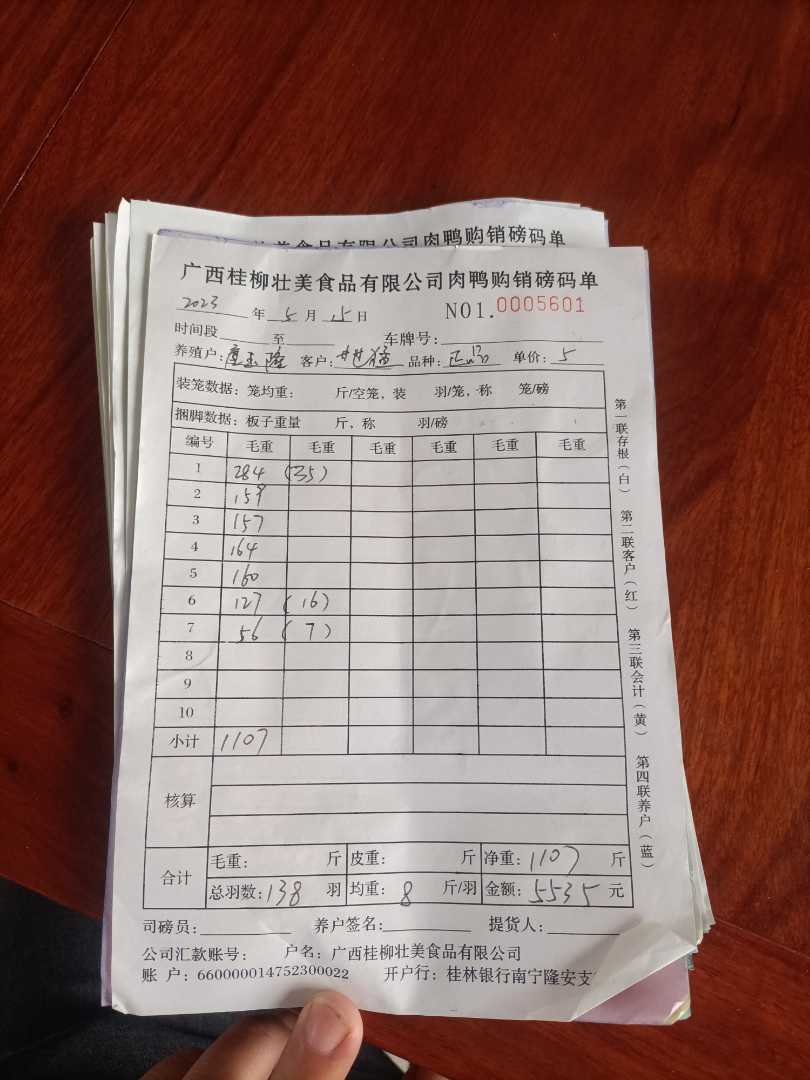 美食品有限公司肉鸭购销磅码单
广西桂柳壮美食品有限公司肉鸭购销磅码单
2023 年 5 月 15 日 NO1.0005601
时间段 至 车牌号：
养殖户： 玉隆 客户： 品种：正品 单价：5
装笼数据：笼均重： 斤/空笼，装 羽/笼，称 笼/磅
捆脚数据：板子重量 斤，称 羽/磅
编号 毛重 毛重 毛重 毛重 毛重 毛重
1 284 (35)
2 159
3 157
4 164
5 160
6 127 (16)
7 56 (7)
8
9
10
小计 1107
核算
合计 毛重： 斤 皮重： 斤 净重：1107 斤
总羽数：138 羽 均重：8 斤/羽 金额：5535 元
司磅员： 养户签名： 提货人：
公司汇款账号： 户名：广西桂柳壮美食品有限公司
账 户：660000014752300022 开户行：桂林银行南宁隆安支
第一联存根（白） 第二联客户（红） 第三联会计（黄） 第四联养户（蓝）